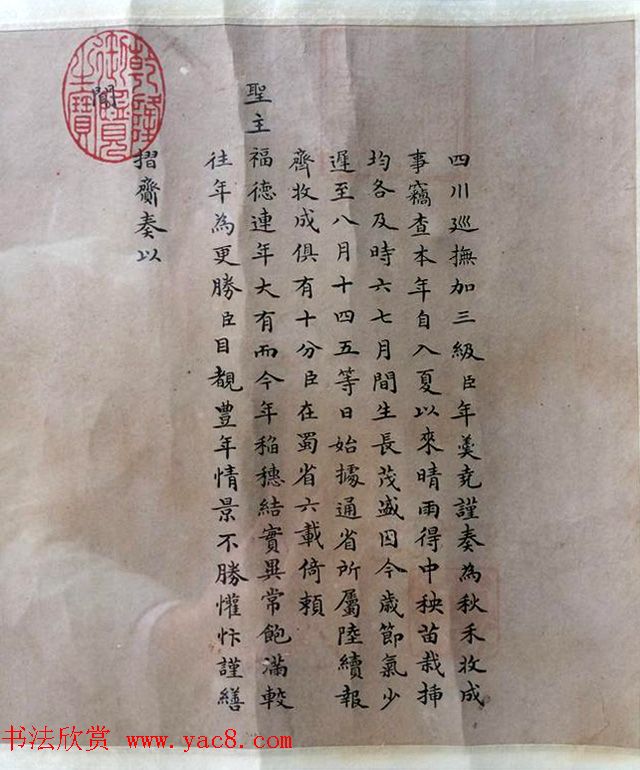 四川巡撫加三級臣年羹堯謹奏為秋禾收成
事竊查本年自入夏以來晴雨得中秧苗栽插
均各及時六七月間生長茂盛因今歲節氣少
遲至八月十四五等日始據通省所屬陸續報
齊收成俱有十分臣在蜀省六載倚賴
聖主
福德連年大有而今年稻穗結實異常飽滿較
往年為更勝臣目覩豐年情景不勝懽忭謹繕
摺齎奏以
聞
乾隆御覽之寶
书法欣赏 www.yac8.com